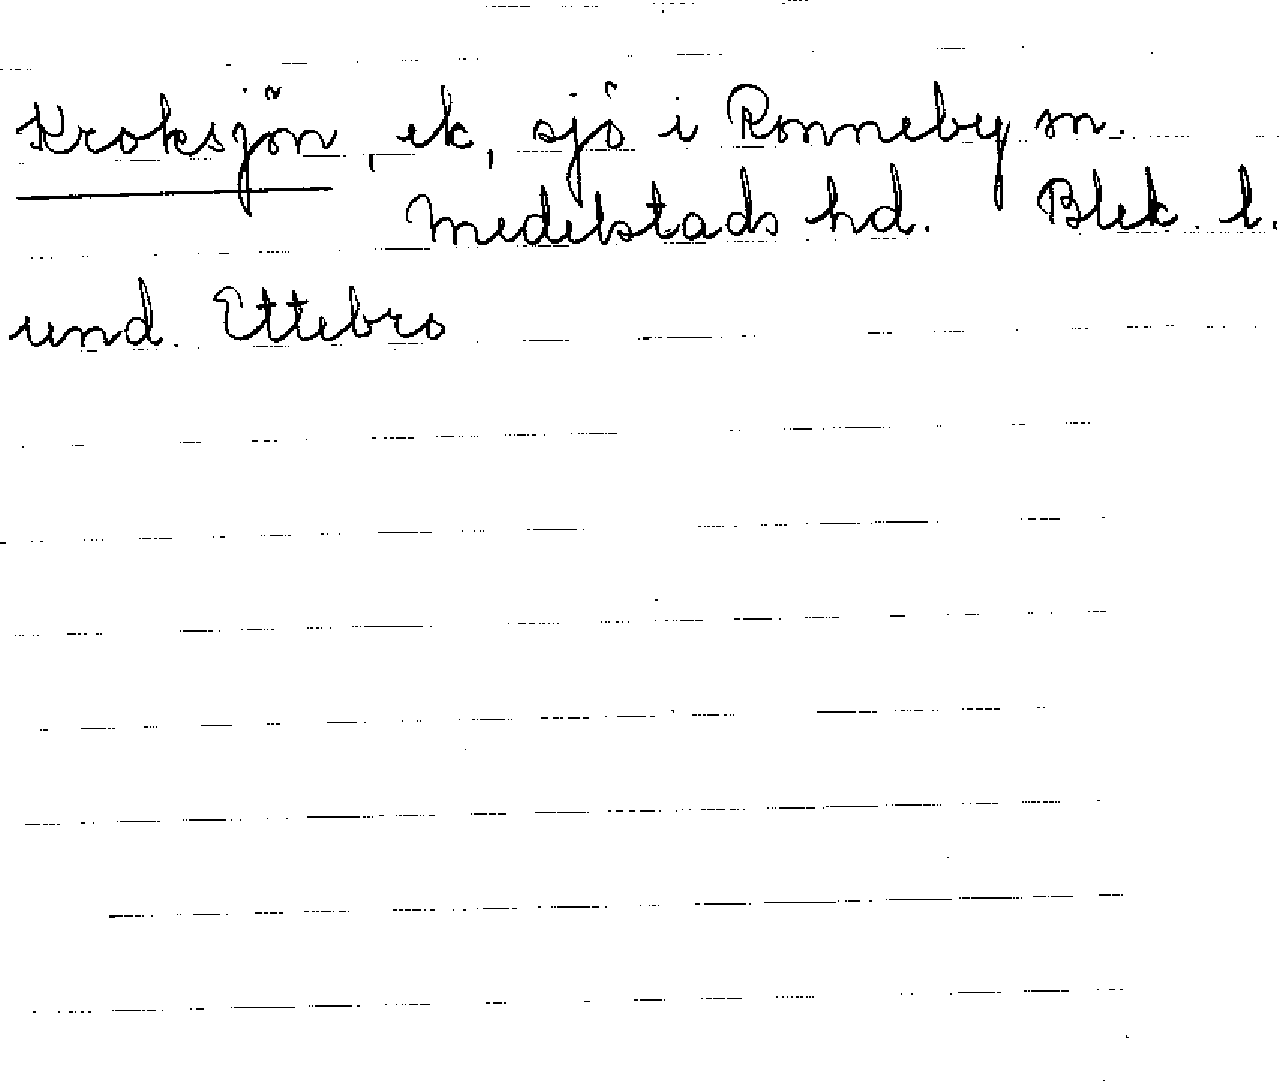 Kroksjön, ek, sjö i Ronneby sn.
Medelstads hd. Blek. l.
und. Ettebro